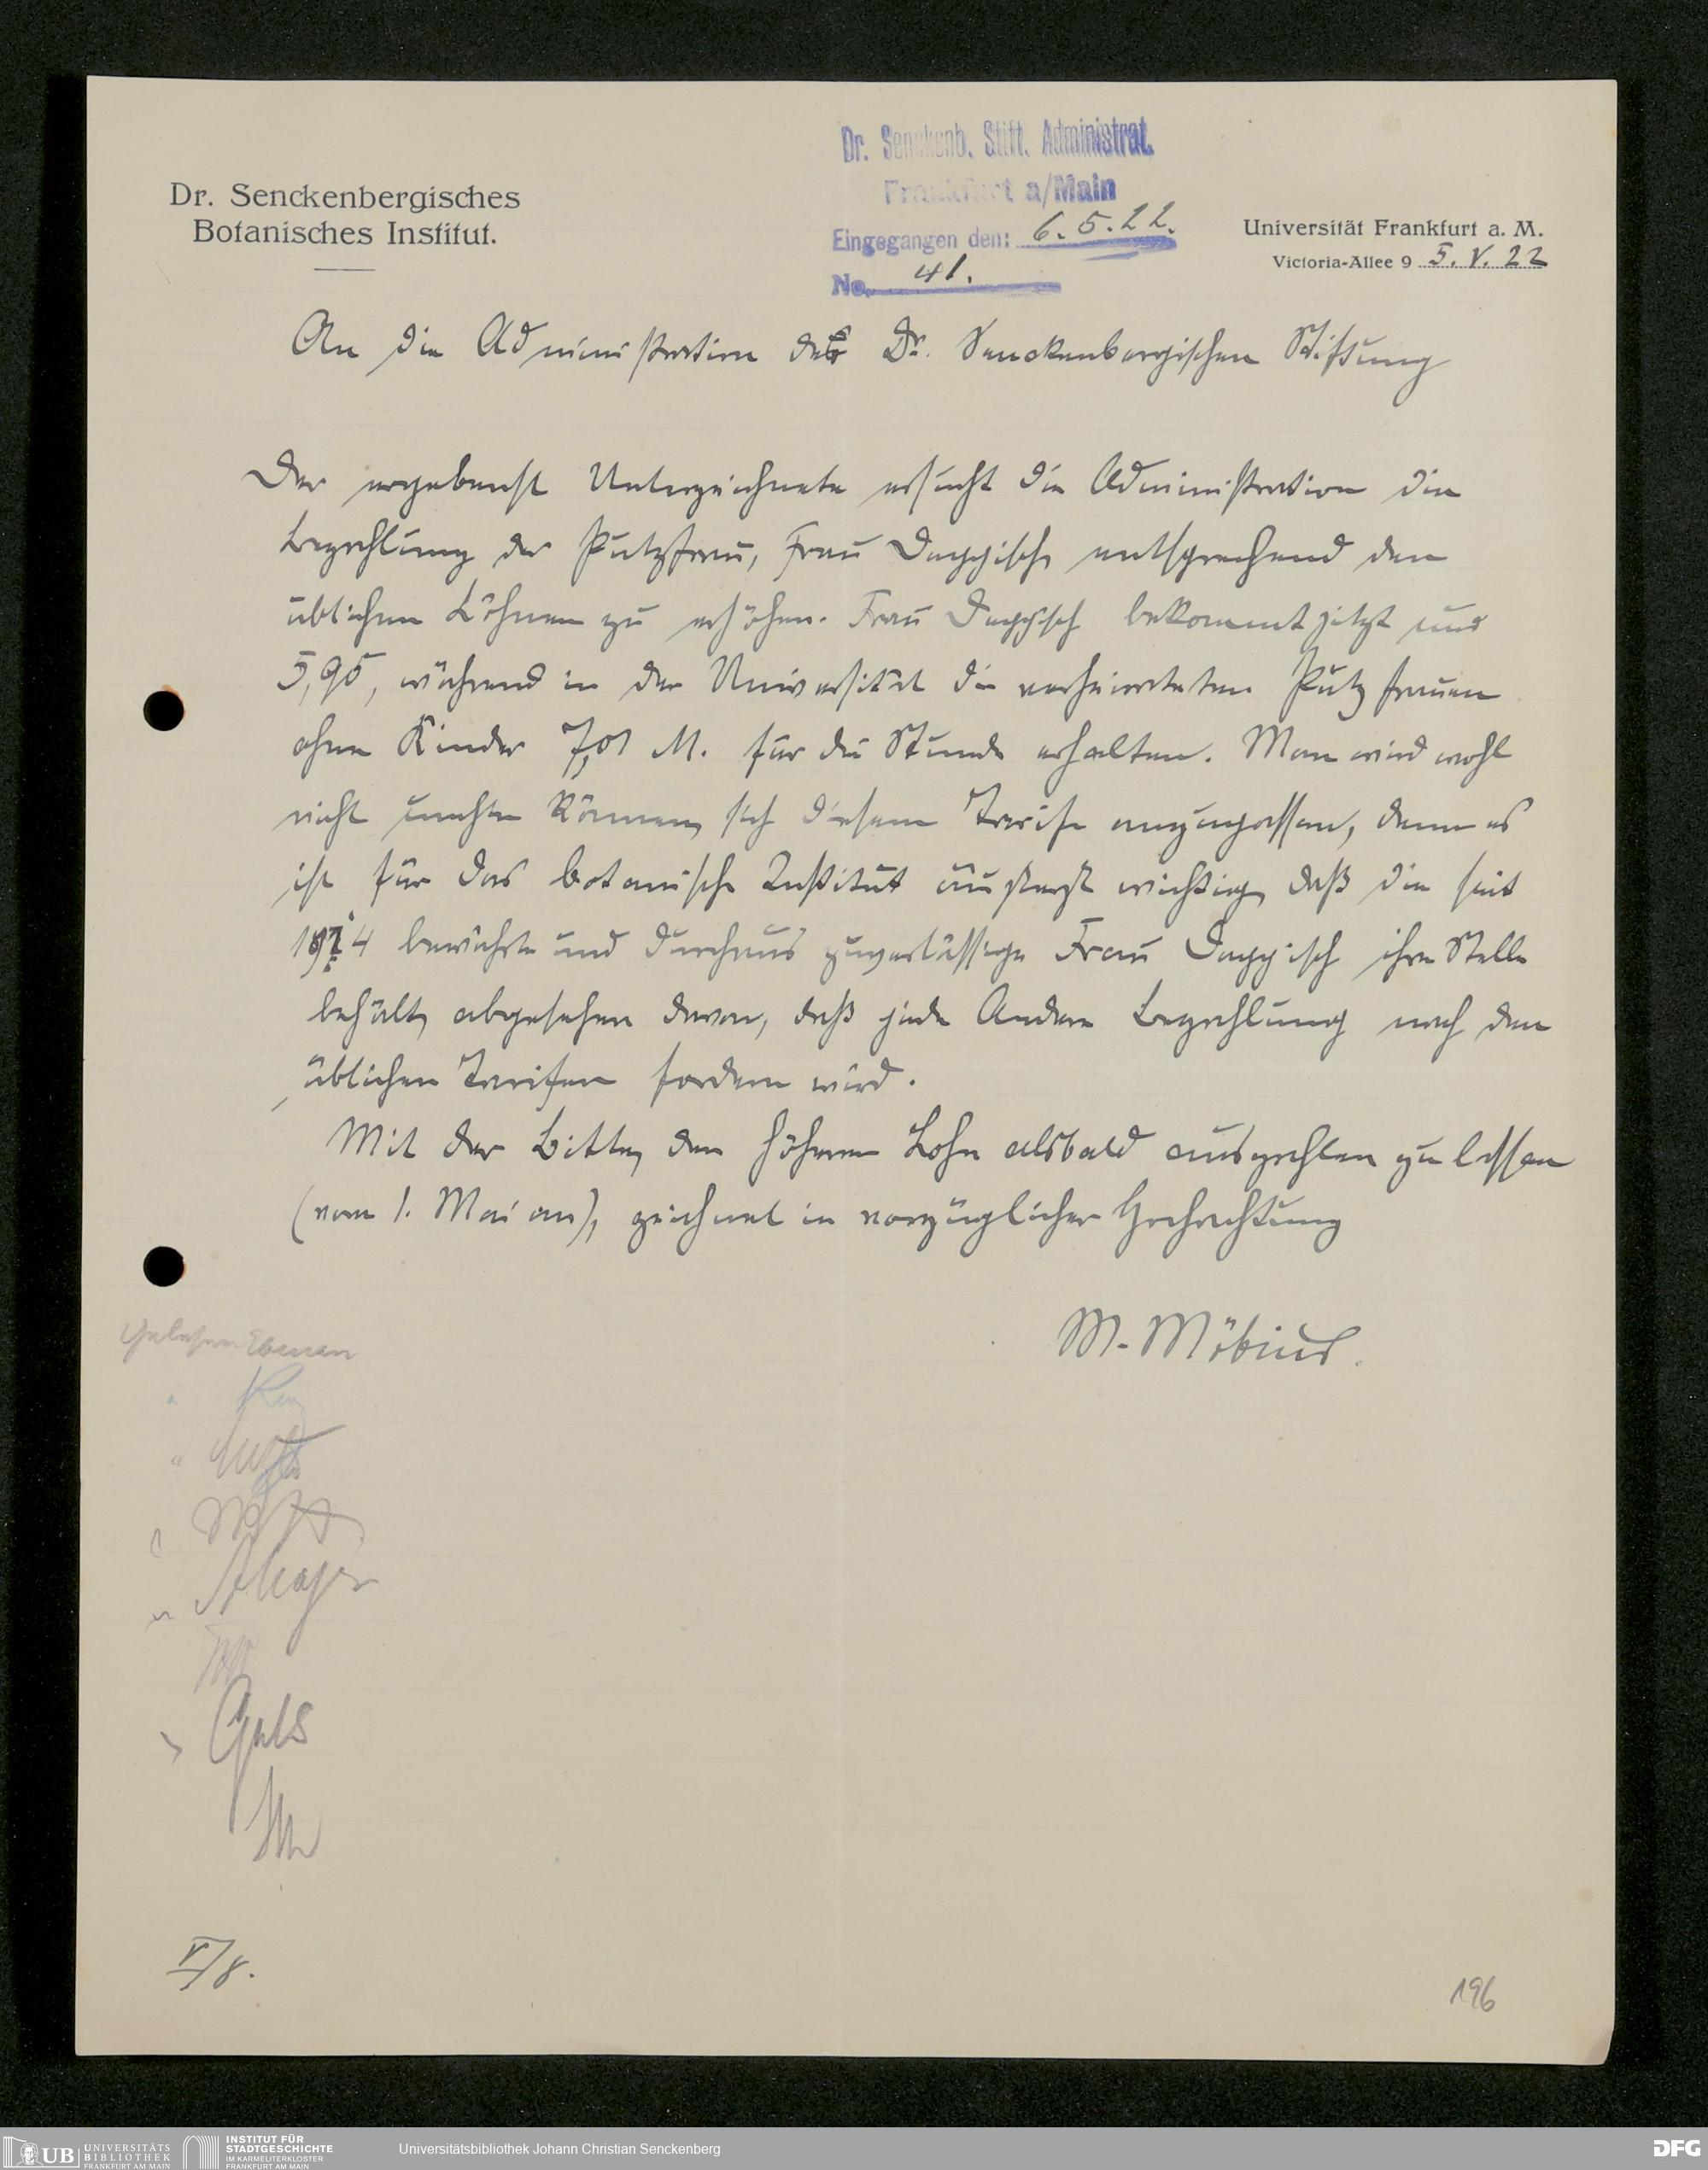 Dr. Senckenb. Stift. Administrat.
Frankfurt a/Main
Eingegangen den: 6.5.22.
No. 41.
Dr. Senckenbergisches
Botanisches Institut.
Universität Frankfurt a. M.
Victoria-Allee 9 5. V. 22
An die Administration der Dr. Senckenbergischen Stiftung
Der ergebenst Unterzeichnete ersucht die Administration die
Bezahlung der Putzfrau, Frau Dappisch, entsprechend den
üblichen Löhnen zu erhöhen. Frau Dappisch bekommt jetzt nur
5,95, während in der Universität die verheirateten Putzfrauen
ohne Kinder 7,01 M. für die Stunde erhalten. Man wird wohl
nicht umhin können, sich diesem Tarife anzupassen, denn es
ist für das botanische Institut äusserst wichtig, daß die seit
1914 bewährte und durchaus zuverlässige Frau Dappisch ihre Stelle
behält, abgesehen davon, daß jede Andere Bezahlung nach den
üblichen Tarifen fordern wird.
Mit der Bitte, den höheren Lohn alsbald auszahlen zu lassen
(vom 1. Mai an), zeichnet in vorzüglicher Hochachtung
M. Möbius.
Gelesen
V/8.
196
UB UNIVERSITÄTS
BIBLIOTHEK
FRANKFURT AM MAIN
INSTITUT FÜR
STADTGESCHICHTE
IM KARMELITERKLOSTER
FRANKFURT AM MAIN
Universitätsbibliothek Johann Christian Senckenberg
DFG